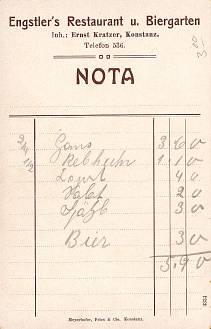 Engstler's Restaurant u. Biergarten
Inh.: Ernst Kratzer, Konstanz.
Telefon 536.
NOTA
Gans 3 60
1/2 Rebhuhn 1 10
40
Salat 20
30
Bier 30
5.90
Meyerhofer, Fries & Cie. Konstanz.